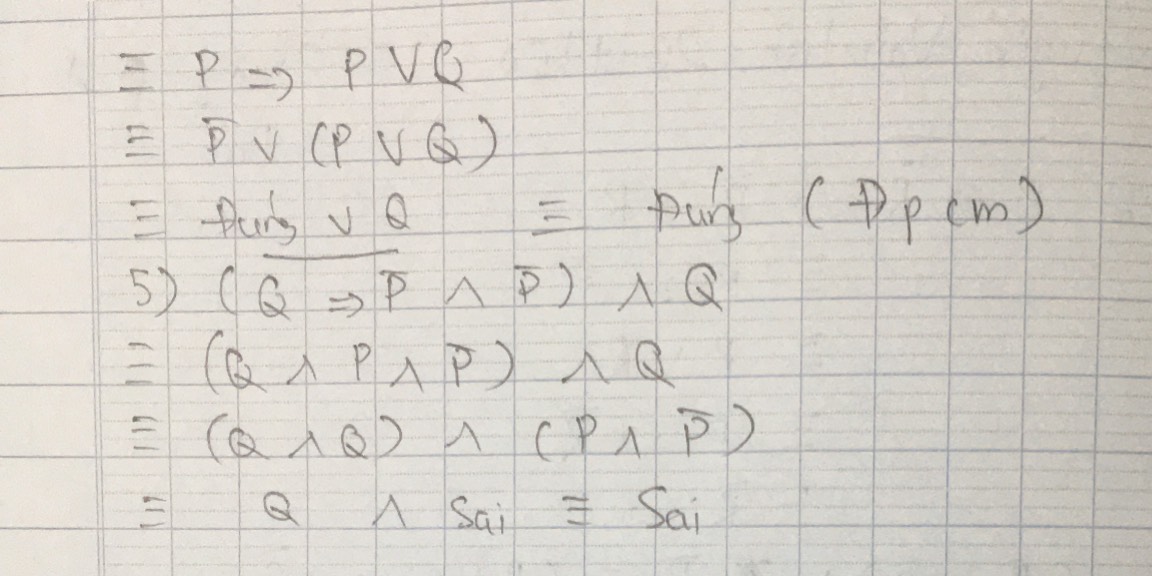 ≡ P ⇒ P ∨ Q
≡ P̅ ∨ (P ∨ Q)
≡ Đúng ∨ Q ≡ Đúng (Đpcm)
5) (Q ⇒ P̅ ∧ P̅) ∧ Q
≡ (Q ∧ P ∧ P̅) ∧ Q
≡ (Q ∧ Q) ∧ (P ∧ P̅)
≡ Q ∧ Sai ≡ Sai